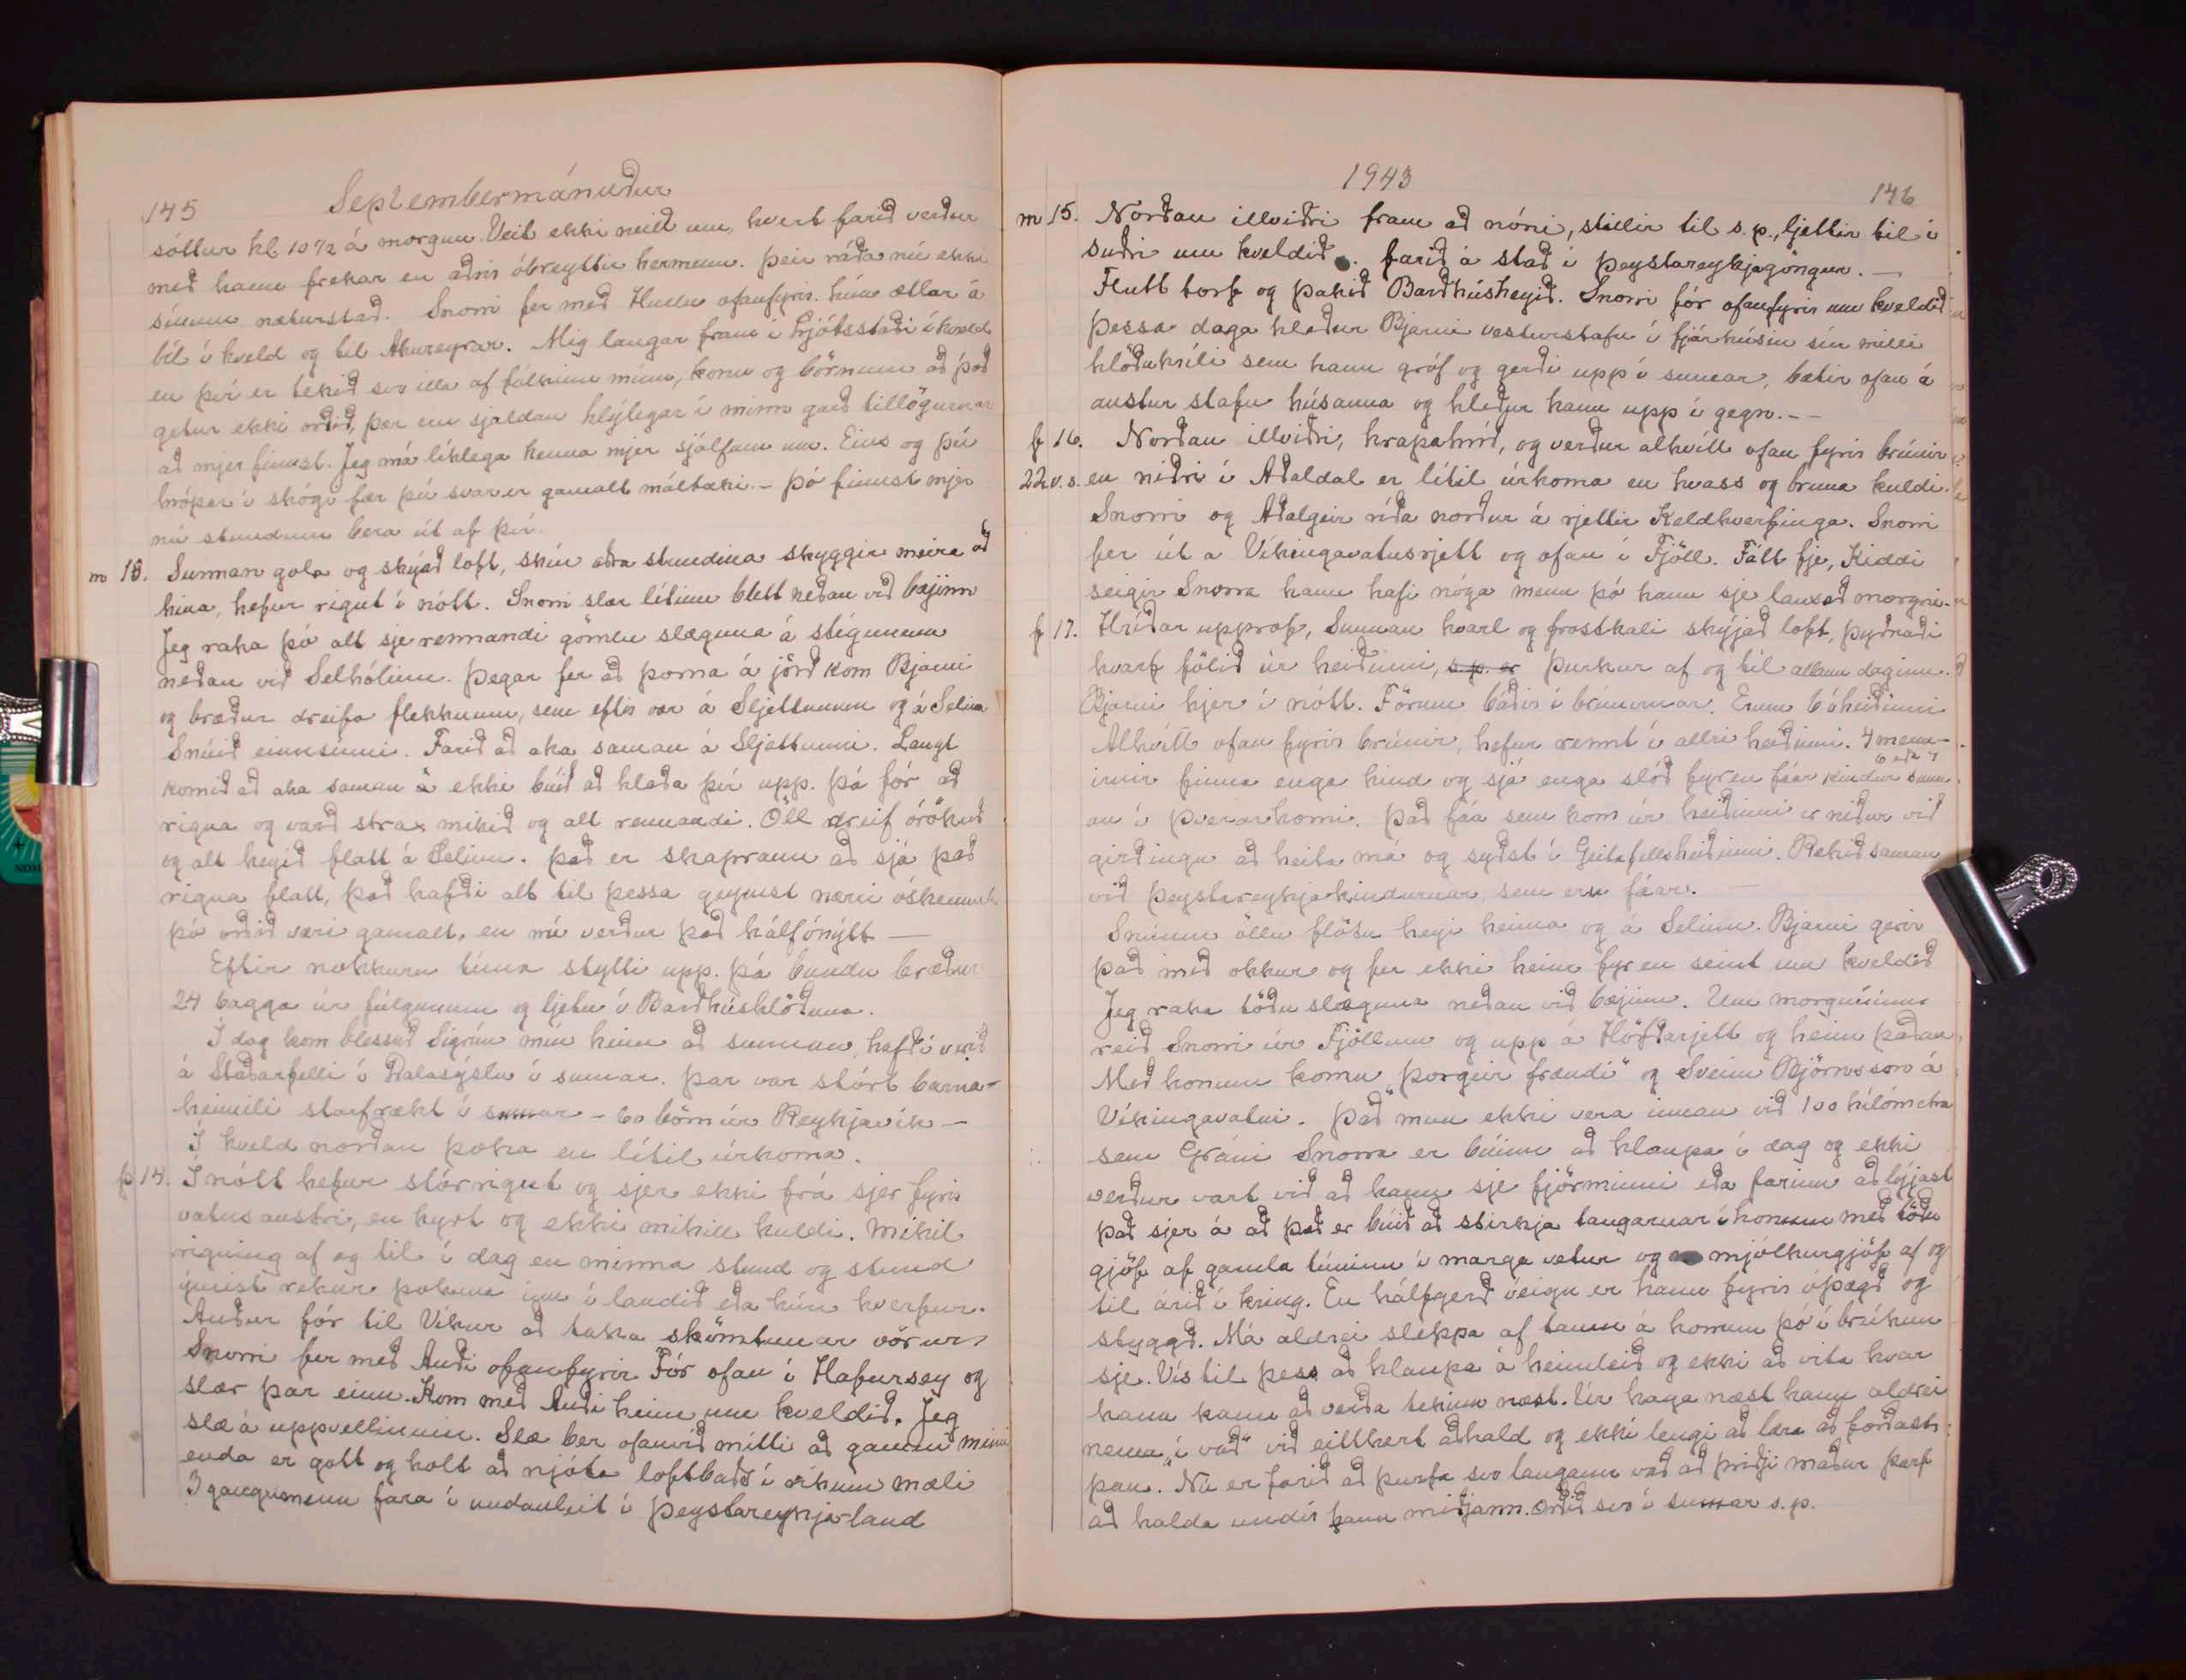 145 Septembermánuður
sóttur kl 10½ á morgun. Veit ekki neitt um, hvert farið verður
með hann frekar en aðrir óbreyttir hermenn. Þeir ráða nú ekki
sínum næturstað. Snorri fer með Huldu ofanfyrir. hún ætlar á
bíl í kveld og til Akureyrar. Mig langar fram í Ljótsstaði í kveld
en því er tekið svo illa af fólkinu mínu, konu og börnum að það
getur ekki orðið, þær eru sjaldan hlýlegar í minn garð tillögurnar
að mjer finnst. Jeg má líklega kenna mjer sjálfum um. Eins og þú
hrópar í skógi fær þú svar er gamalt máltæki. - Þó finnst mjer
nú stundum bera út af því.
m 13. Sunnan gola og skýjað loft, skín aðra stundina skyggir meira að
hina, hefur rignt í nótt. Snorri slær lítinn blett neðan við bæjinn
Jeg raka þó alt sje rennandi gömlu slæguna á stígunum
neðan við Selhólinn. Þegar fer að þorna á jörð kom Bjarni
og bræður dreifa flekkunum, sem eftir var á Sljettunum og á Selinu
Snúið einusinni. Farið að aka saman á Sljettunni. Langt
komið að aka saman & ekki búið að hlaða því upp. þá fór að
rigna og varð strax mikið og alt rennandi. Öll dreif órökuð
og alt heyið flatt á Selinu. Það er skapraun að sjá það
rigna flatt, það hafði alt til þessa geymst nærri óskemmt
þó orðið væri gamalt, en nú verður það hálfónýtt —
Eftir nokkurn tíma stytti upp. þá bundu bræður
24 bagga úr fúlgunum og ljetu í Barðhúshlöðuna.
Í dag kom blessuð Sigrún mín heim að sunnan, hafði verið
á Staðarfelli í Dalasýslu í sumar. þar var stórt barna-
heimili starfrækt í sumar - 60 börn úr Reykjavík -
Í kveld norðan þoka en lítil úrkoma.
þ 14. Í nótt hefur stórrignt og sjer ekki frá sjer fyrir
vatnsaustri, en kyrt og ekki mikill kuldi. Mikil
rigning af og til í dag en minna stund og stund
ýmist rekur þokuna inn í landið eða hún hverfur.
Auður fór til Víkur að taka skömtunar vörur
Snorri fer með Auði ofanfyrir Fór ofan í Hafursey og
slær þar einn. Kom með Auði heim um kveldið. Jeg
slæ á uppvellinum. Slæ ber ofanvið mitti að gamni mínu
enda er gott og holt að njóta loftbaðs í ríkum mæli
3 gangnamenn fara í undanleit í Þeystareykja-land
1943 146
m 15. Norðan illviðri fram að nóni, stillir til s.p., ljettir til í
suðri um kveldið. farið á stað í Þeystareykjagöngur. —
Flutt torf og þakið Barðhúsheyið. Snorri fór ofanfyrir um kveldið
Þessa daga hleður Bjarni vesturstafn í fjárhúsin sín milli
hlöðuhvíli sem hann gróf og gerði upp í sumar, bætir ofan á
austur stafn húsanna og hleður hann upp í gegn. - -
f 16. Norðan illviðri, krapahríð, og verður alhvítt ofan fyrir brúnir
22 v.s. en niðri í Aðaldal er lítil úrkoma en hvass og bruna kuldi.
Snorri og Aðalgeir ríða norður á rjettir Keldhverfinga. Snorri
fer út á Víkingavatnsrjett og ofan í Fjöll. Fátt fje, Kiddi
seigir Snorra hann hafi nóga menn þó hann sje laus að morgni.
f 17. Hríðar upprof, Sunnan kvarl og frostkali skýjað loft, þyðnaði
hvarf fölið úr heiðinni, s.p. er Þurkur af og til allann daginn.
Bjarni hjer í nótt. Förum báðir í brúnirnar. Erum 6 á heiðinni
Alhvítt ofan fyrir brúnir, hefur rennt í allri heiðinni. 4 menn-
irnir finna enga kind og sjá enga slóð fyr en fáar kindur sunn
6 eða 7
an í Þverárhorni. Það fáa sem kom úr heiðinni er niður við
girðingu að heita má og syðst í Geitafellsheiðinni. Rekið saman
við Þeystareykjakindurnar sem eru fáar. —
Snúum öllu flötu heyi heima og á Selinu. Bjarni gerir
það með okkur og fer ekki heim fyr en seint um kveldið
Jeg raka töðu slæguna neðan við bæjinn. Um morguninn
reið Snorri úr Fjöllum og upp á Höfðarjett og heim þaðan.
Með honum komu „Þorgeir frændi" og Sveinn Björnsson á
Víkingavatni. Það mun ekki vera innan við 100 kílómetra
sem Gráni Snorra er búinn að hlaupa í dag og ekki
verður vart við að hann sje fjörminni eða farinn að lýjast
það sjer á að það er búið að stirkja taugarnar í honum með töðu
gjöf af gamla túninu í marga vetur og mjólkurgjöf af og
til árið í kring. En hálfgerð veign er hann fyrir óþægð og
styggð. Má aldrei sleppa af taum á honum þó í bríkum
sje. Vís til þess að hlaupa á heimleið og ekki að vita hvar
hann kann að verða tekinn næst. Úr haga næst hann aldrei
nema „í vað" við eitthvert aðhald og ekki lengi að læra að forðast
þau. Nú er farið að þurfa svo langann vað að þriðji maður þarf
að halda undir hann miðjann. Orðið svo í sumar s.p.